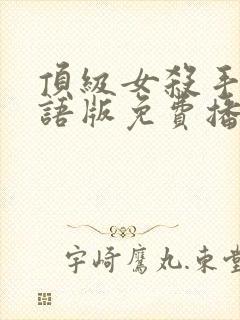 頂級女殺手
語版免費播
宇崎鷹丸.束堂